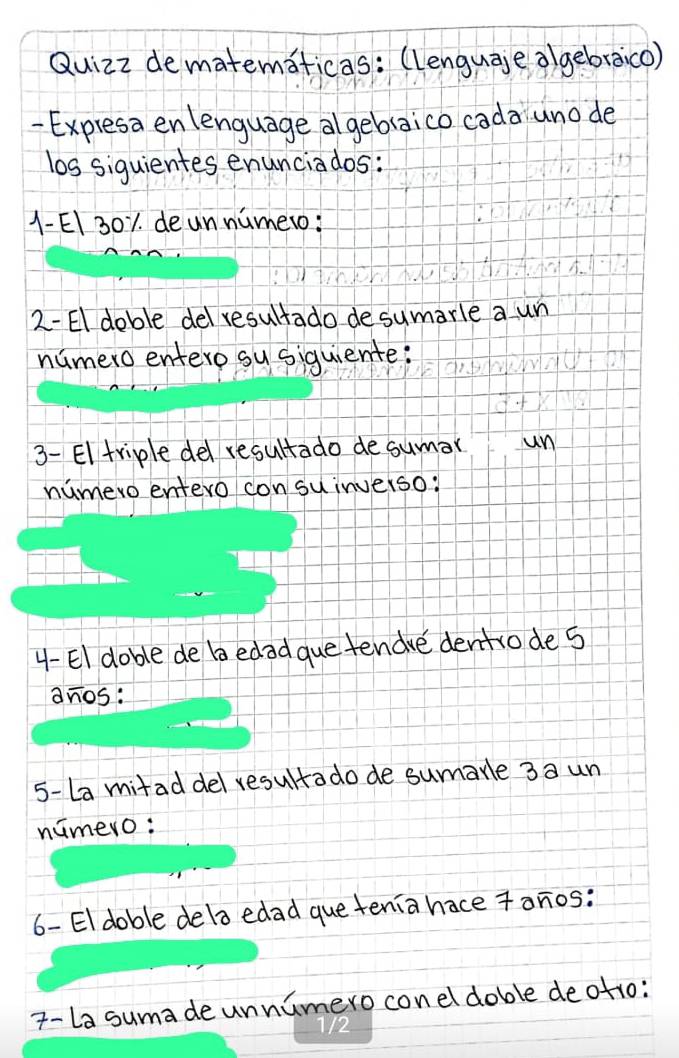 Quizz de matemáticas: (Lenguaje algebraico)
-Expresa en lenguage algebraico cada uno de
los siguientes enunciados:
1-El 30% de un número:
2-El doble del resultado de sumarle a un
número entero su siguiente:
3- El triple del resultado de sumar un
número entero con su inverso:
4-El doble de la edad que tendré dentro de 5
años:
5-La mitad del resultado de sumarle 3 a un
número:
6- El doble de la edad que tenía hace 7 años:
7-La suma de un número con el doble de otro:
1/2